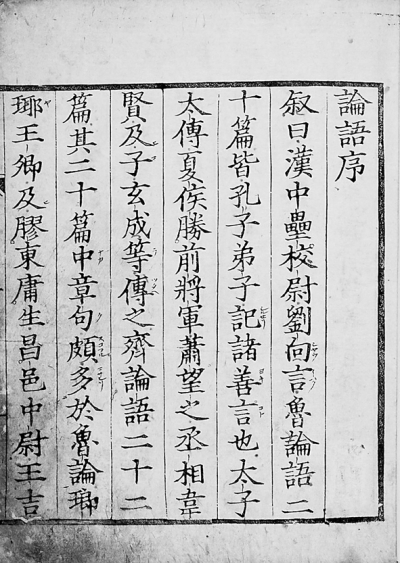 論語序
敘曰漢中壘校尉劉向言魯論語二
十篇皆孔子弟子記諸善言也太子
太傅夏侯勝前將軍蕭望之丞相韋
賢及子玄成等傳之齊論語二十二
篇其二十篇中章句頗多於魯論琅
琊王卿及膠東庸生昌邑中尉王吉